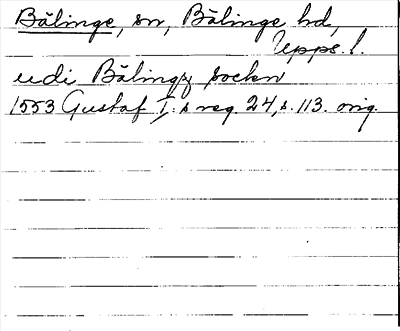 Bälinge, sn, Bälinge hd,
Upps. l.
udi Bälingz sockn
1553 Gustaf I:s reg. 24, s. 113. orig.